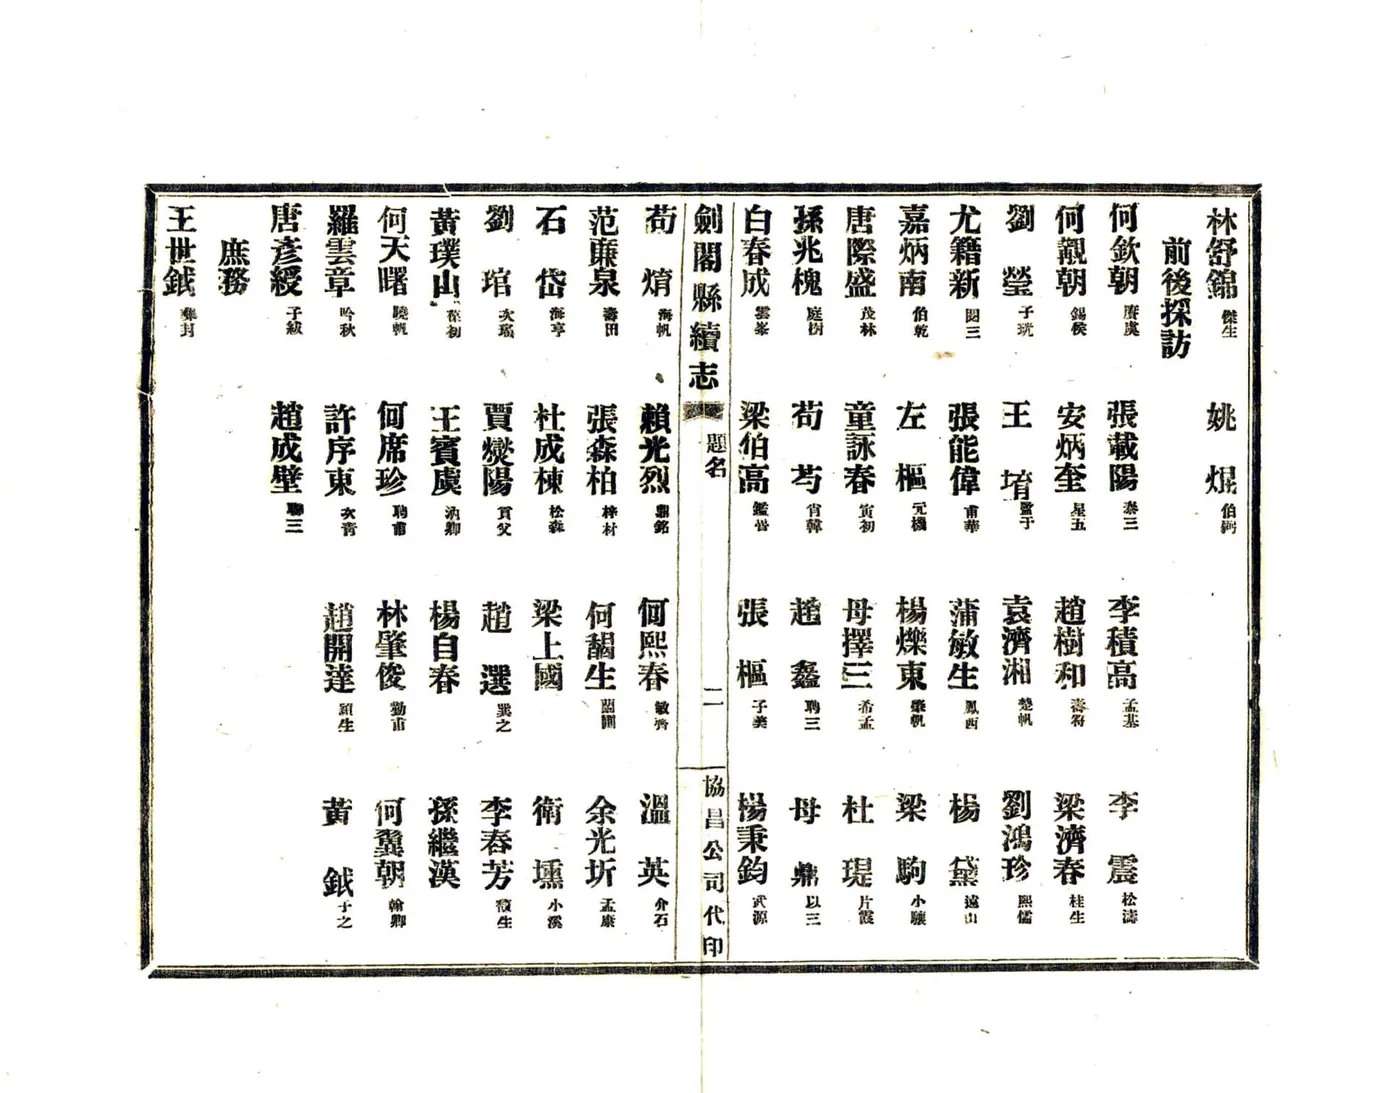 林舒錦 傑生 姚焜 伯錡
前後採訪
何欽朝 賡虞 張載陽 泰三 李積高 孟基 李震 松濤
何觀朝 錫侯 安炳奎 星五 趙樹和 壽符 梁濟春 桂生
劉瑩 子珖 王堉 監于 袁濟湘 楚帆 劉鴻珍 熙儒
尤籍新 閱三 張能偉 甫華 蒲敏生 鳳西 楊黛 遠山
嘉炳南 伯乾 左樞 元機 楊爍東 肇帆 梁駒 小驤
唐際盛 茂林 童詠春 寅初 母擇三 希孟 杜瑅 片霞
孫兆槐 庭樹 苟芍 肖韓 趙鑫 聘三 母鼎 以三
白春成 雲峯 梁伯高 鑑晉 張樞 子美 楊秉鈞 武源
劍閣縣續志 題名 二 協昌公司代印
苟焴 海帆 賴光烈 鼎銘 何熙春 敏齊 溫英 介石
范廉泉 壽田 張森柏 梓材 何謁生 余光圻 孟康
石岱 海亭 杜成棟 松森 梁上國 衛壎 小溪
劉琯 次瑤 賈燮陽 貢父 趙選 巽之 李春芳 馥生
黃璞山 葆初 王賓虞 泂卿 楊自春 孫繼漢
何天曙 曉帆 何席珍 聘甫 林肇俊 勤甫 何翼朝 翰卿
羅雲章 吟秋 許序東 次青 趙開達 穎生 黃鉞 于之
唐彥綬 子紱 趙成璧 聯三
庶務
王世鉞 彝封